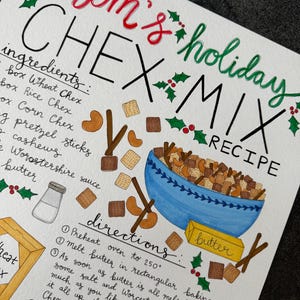 mom's holiday
CHEX MIX
RECIPE
ingredients:
box Wheat Chex
box Rice Chex
box Corn Chex
pretzel sticks
cashews
Worcestershire sauce
butter
butter
directions:
① Preheat oven to 250°
② Melt butter in rectangular baking
③ As soon as butter is all melted
some salt and Worces
much as you like
it all up
Chex